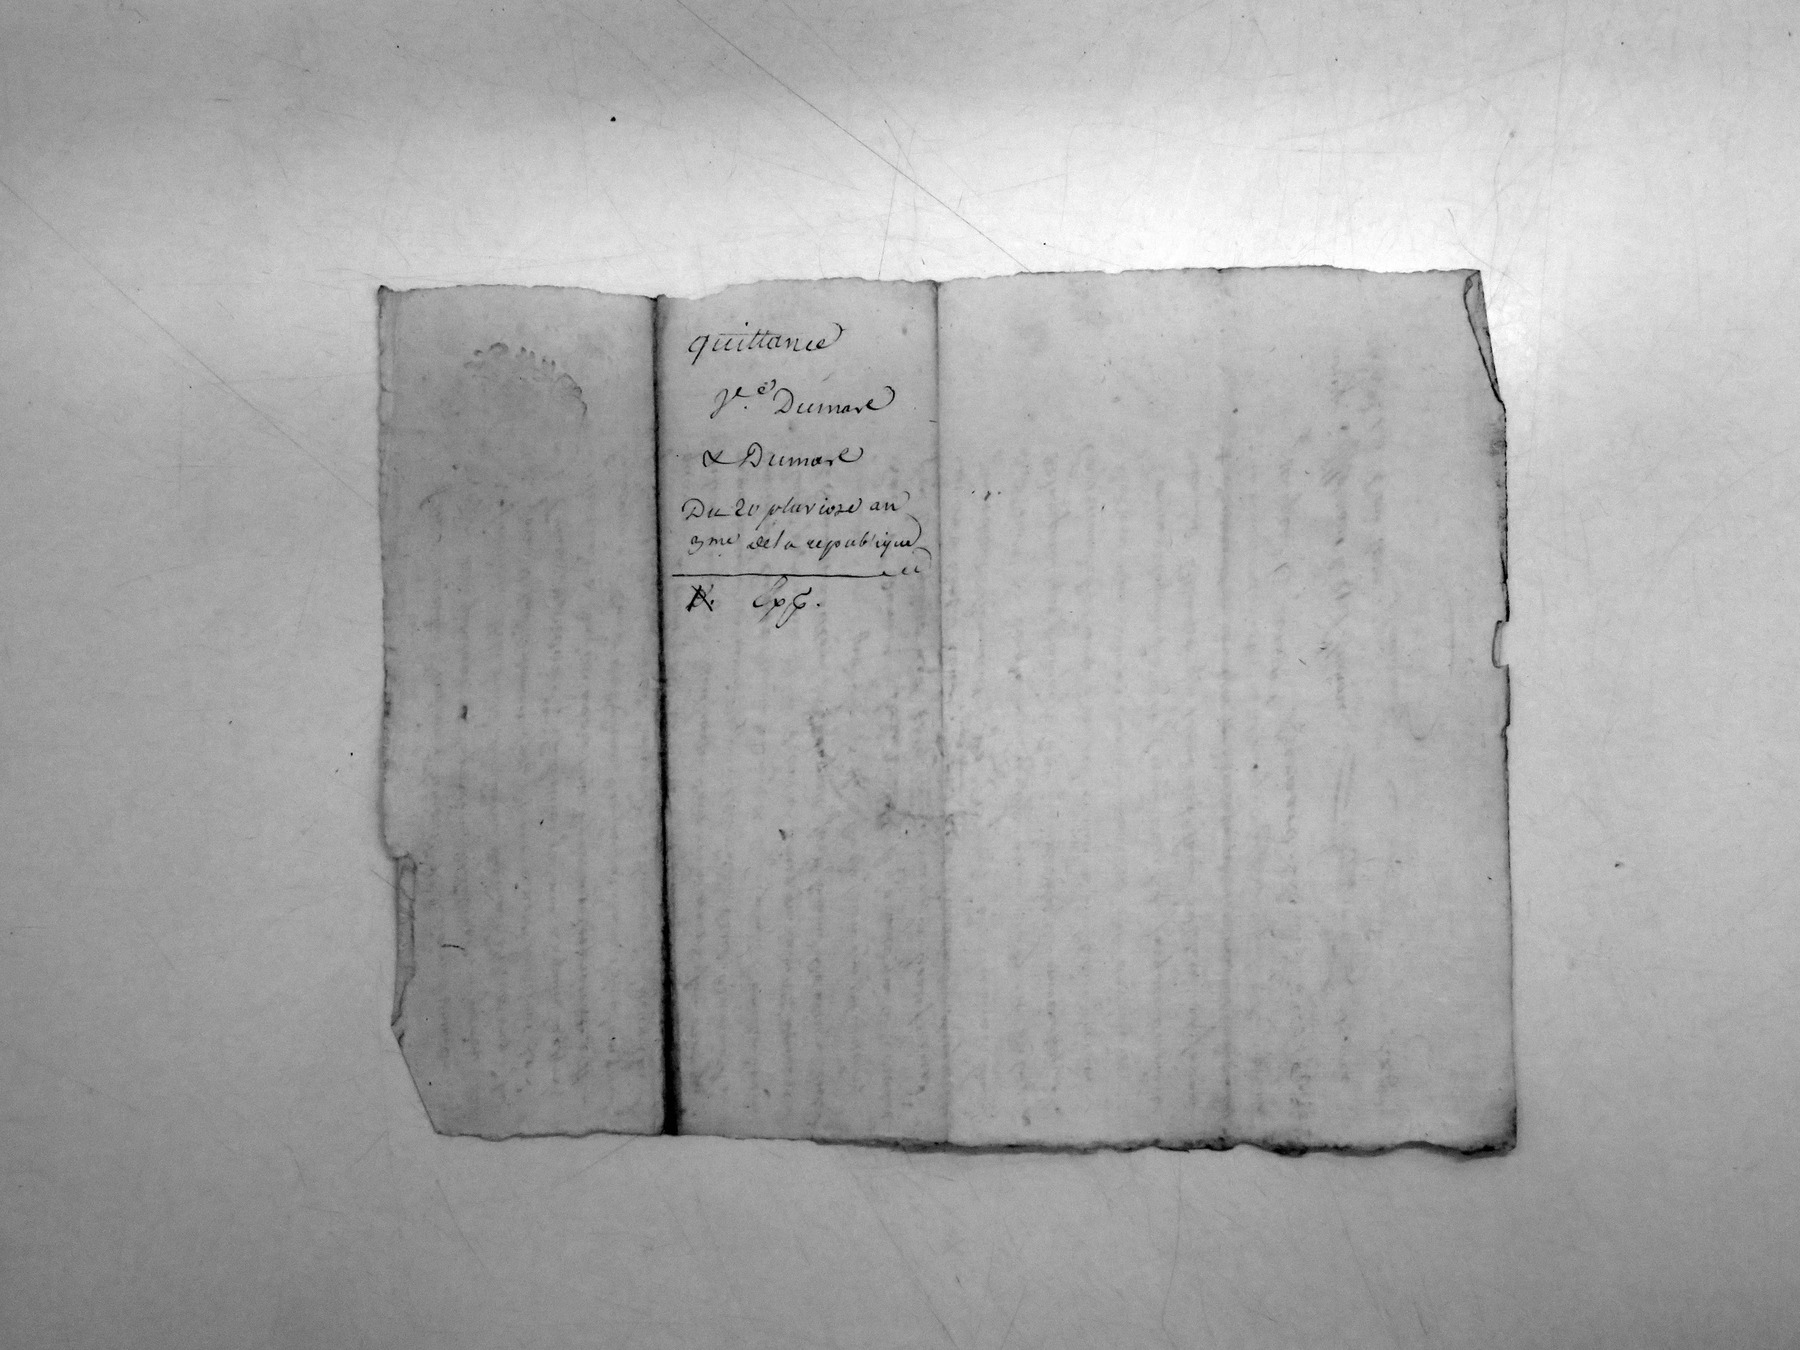 quittance
Ve. Dumare
& Dumare
Du 20 pluviose an
3me de la republique